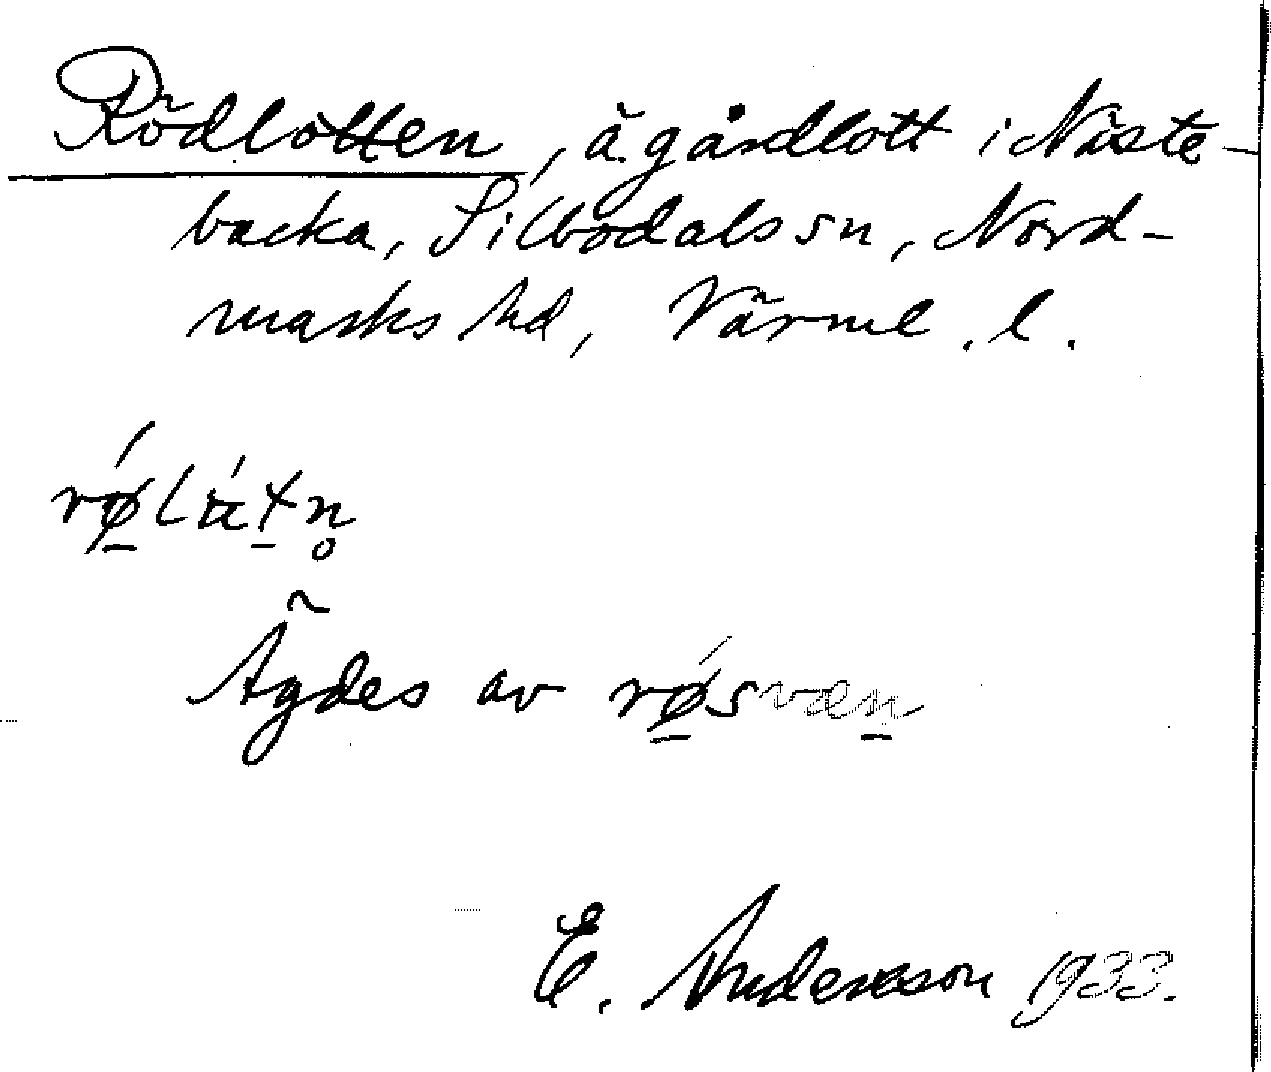 Rödlotten, ägårdlott i Näste-
backa, Silbodals sn, Nord-
marks hd, Värml. l.
Ägdes av røsvæn
E. Andersson 1933.